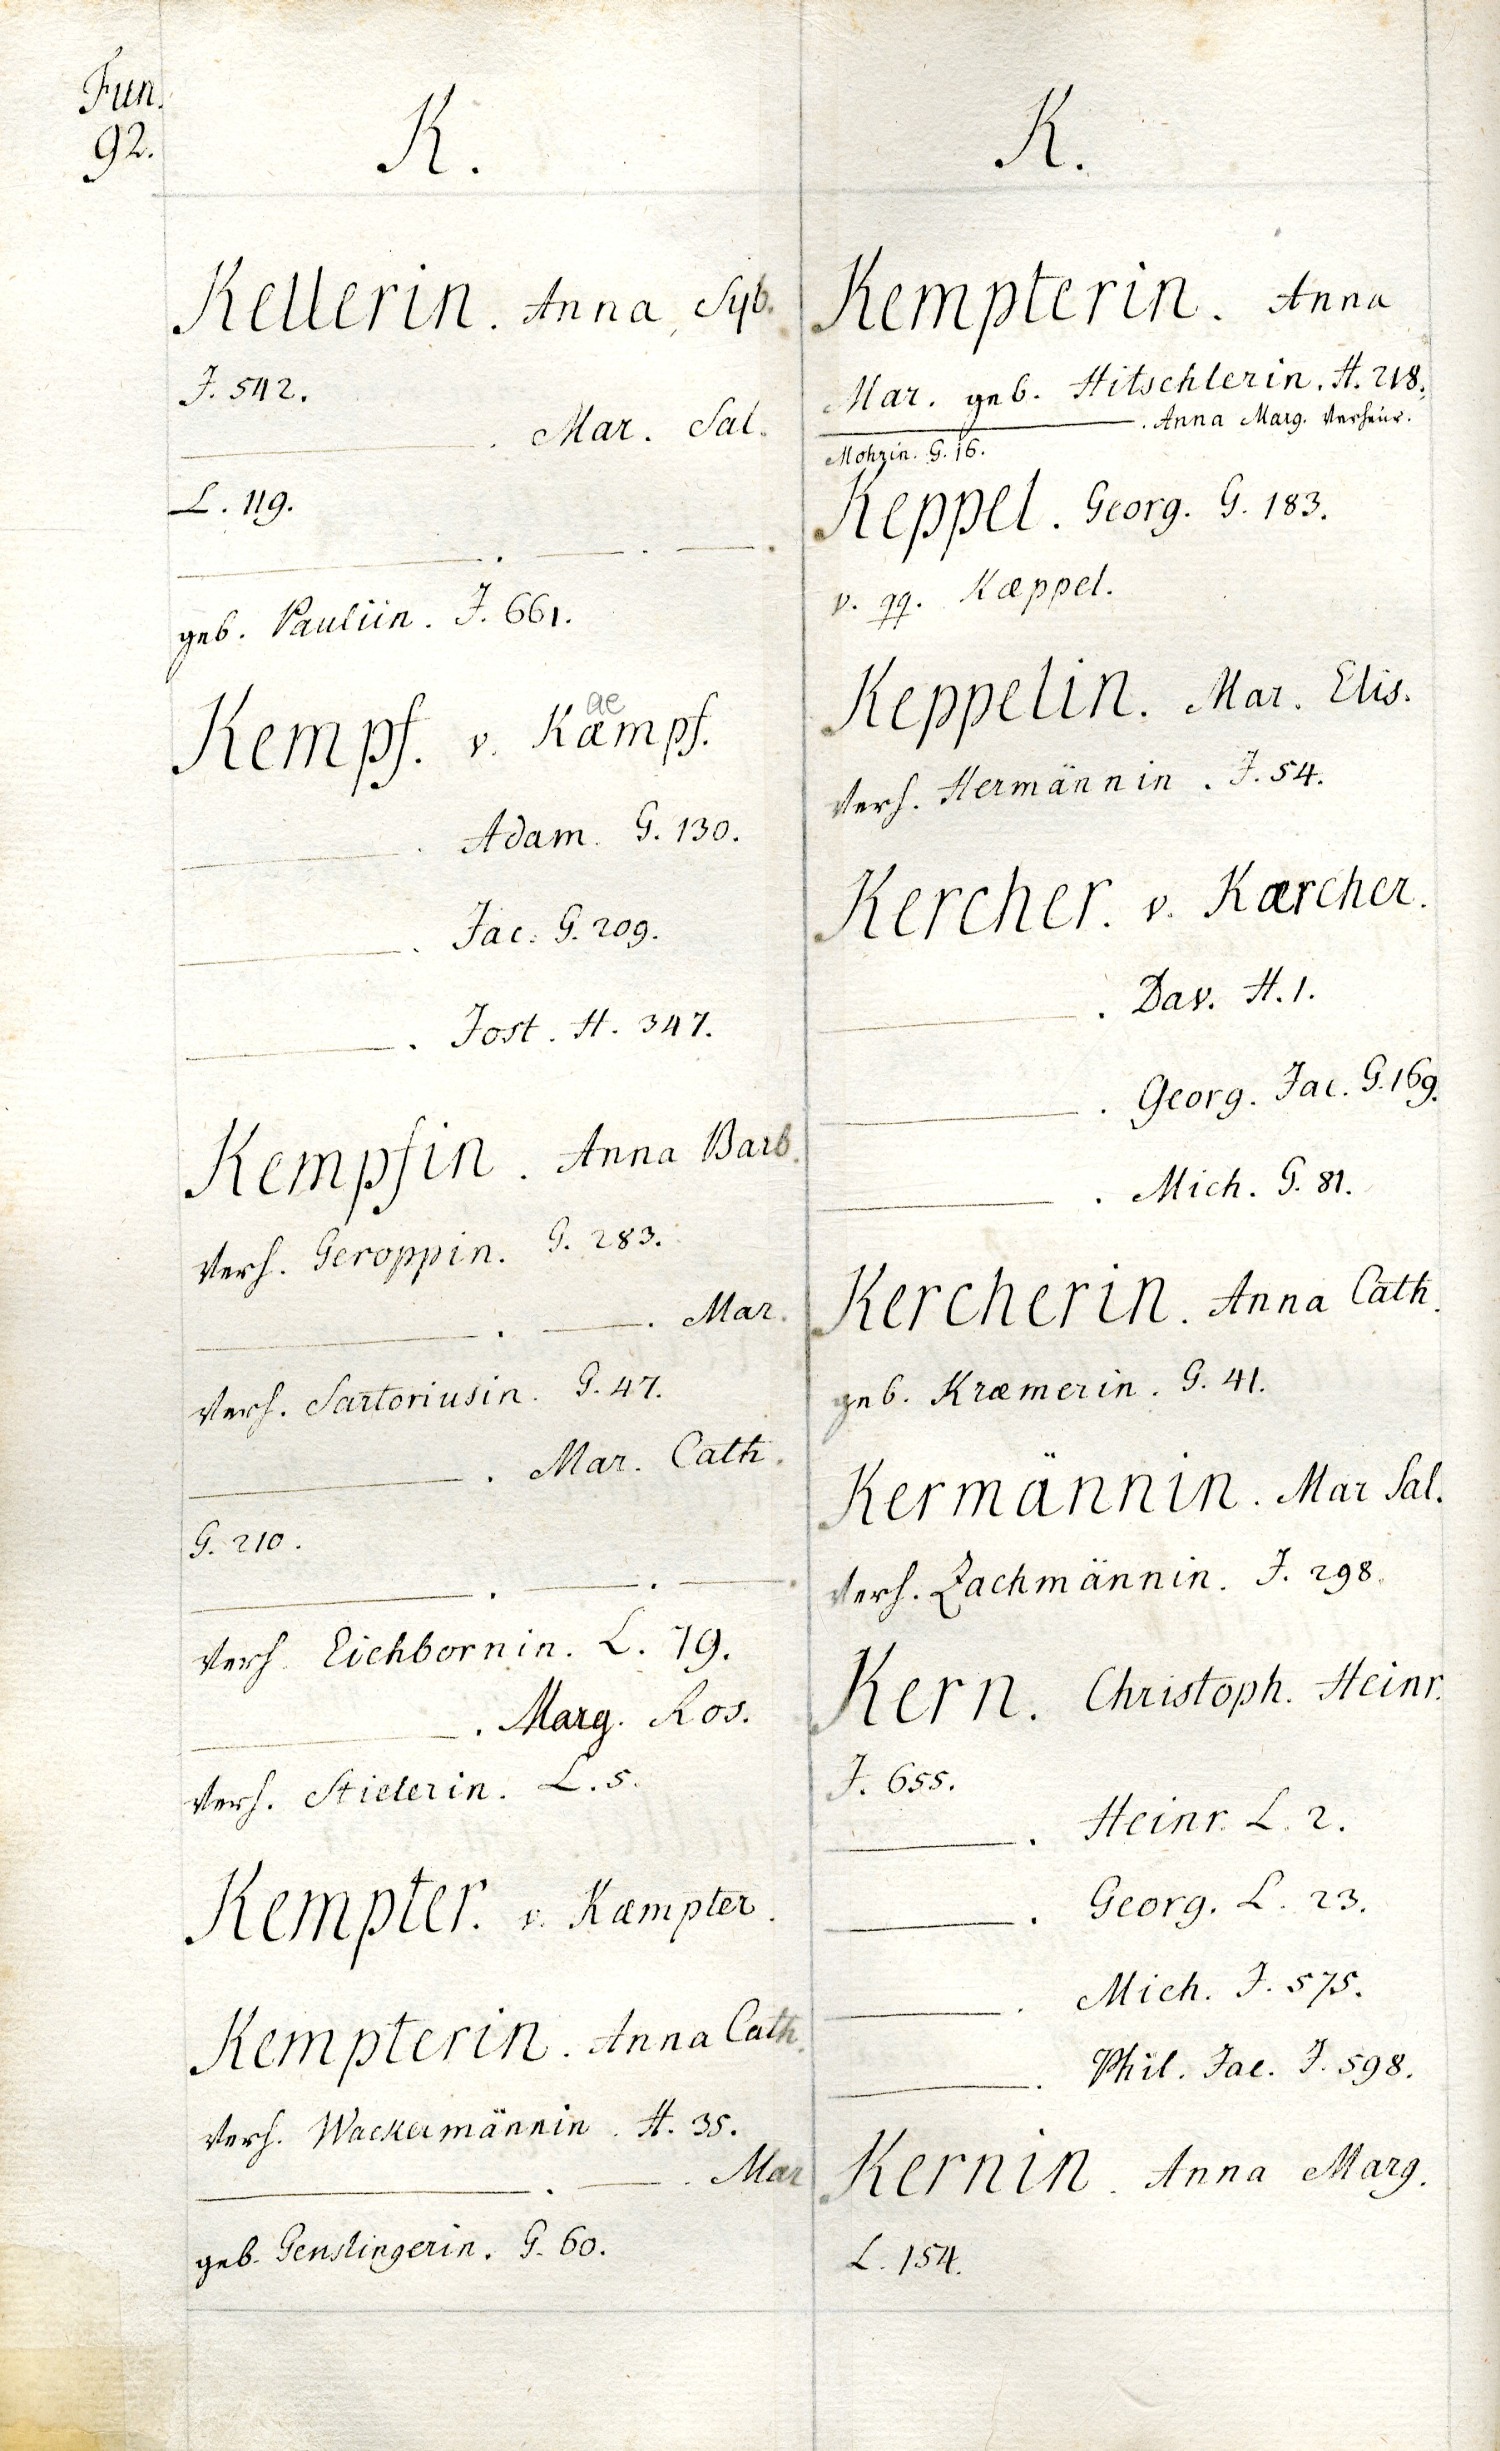 Fun.
92.
K.
Kellerin. Anna Syb.
J. 542.
———. Mar. Sal.
L. 119.
———. ———. ———.
geb. Pauliin. J. 661.
Kempf. v. Kæmpf.
ae
———. Adam. G. 130.
———. Jac. G. 209.
———. Jost. H. 347.
Kempfin. Anna Barb.
verh. Geroppin. G. 283.
———. ———. Mar.
verh. Sartoriusin. G. 47.
———. Mar. Cath.
G. 210.
———. ———. ———.
verh. Eichbornin. L. 79.
———. Marg. Ros.
verh. Stielerin. L. 5.
Kempter. v. Kæmpter.
Kempterin. Anna Cath.
verh. Wackermännin. H. 35.
———. ———. Mar
geb. Genslingerin. G. 60.
K.
Kempterin. Anna
Mar. geb. Hitschlerin. H. 218.
———. Anna Marg. verheur.
Mohrin. G. 16.
Keppel. Georg. G. 183.
v. qq. Kæppel.
Keppelin. Mar. Elis.
verh. Hermännin. J. 54.
Kercher. v. Kærcher.
———. Dav. H. 1.
———. Georg. Jac. G. 169.
———. Mich. G. 81.
Kercherin. Anna Cath.
geb. Kræmerin. G. 41.
Kermännin. Mar Sal.
verh. Zachmännin. J. 298.
Kern. Christoph. Heinr.
J. 655.
———. Heinr. L. 2.
———. Georg. L. 23.
———. Mich. J. 575.
———. Phil. Jac. J. 598.
Kernin. Anna Marg.
L. 154.